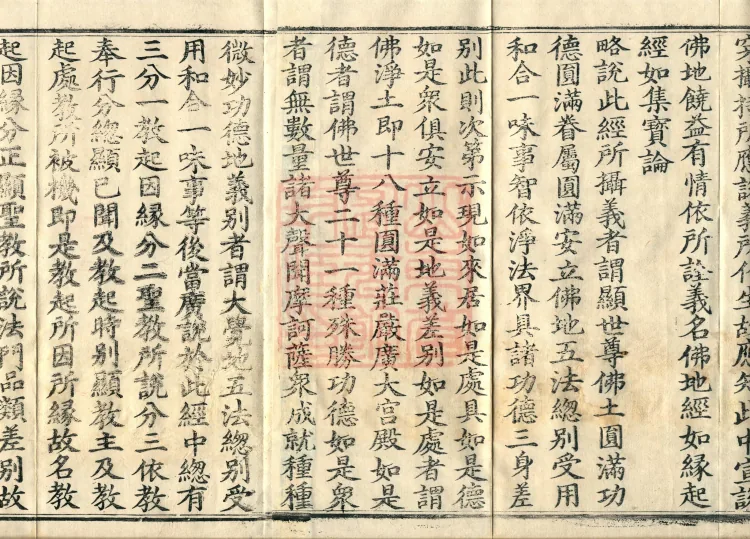 穿攝持所應說義所化生故應知此中宣說
佛地饒益有情依所詮義名佛地經如緣起
經如集寶論
略說此經所攝義者謂顯世尊佛土圓滿功
德圓滿眷屬圓滿安立佛地五法總別受用
和合一味事智依淨法界具諸功德三身差
別此則次第示現如來居如是處具如是德
如是衆俱安立如是地義差別如是處者謂
佛淨土即十八種圓滿莊嚴廣大宮殿如是
德者謂佛世尊二十一種殊勝功德如是衆
者謂無數量諸大聲聞摩訶薩衆成就種種
微妙功德地義別者謂大覺地五法總別受
用和合一味事等後當廣說於此經中總有
三分一教起因緣分二聖教所說分三依教
奉行分總顯已聞及教起時別顯教主及教
起處教所被機即是教起所因所緣故名教
起因緣分正顯聖教所說法門品類差別故